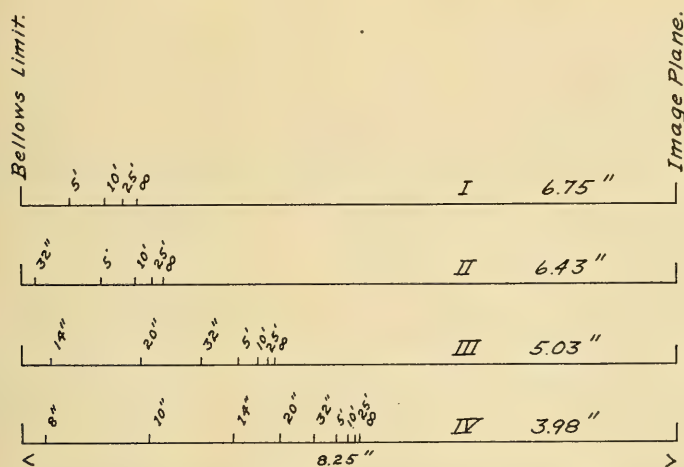 Bellows Limit.
Image Plane.
5' 10' 25' ∞
I 6.75"
32" 5' 10' 25' ∞
II 6.43"
14" 20" 32" 5' 10' 25' ∞
III 5.03"
8" 10" 14" 20" 32" 5' 10' 25' ∞
IV 3.98"
< 8.25" >